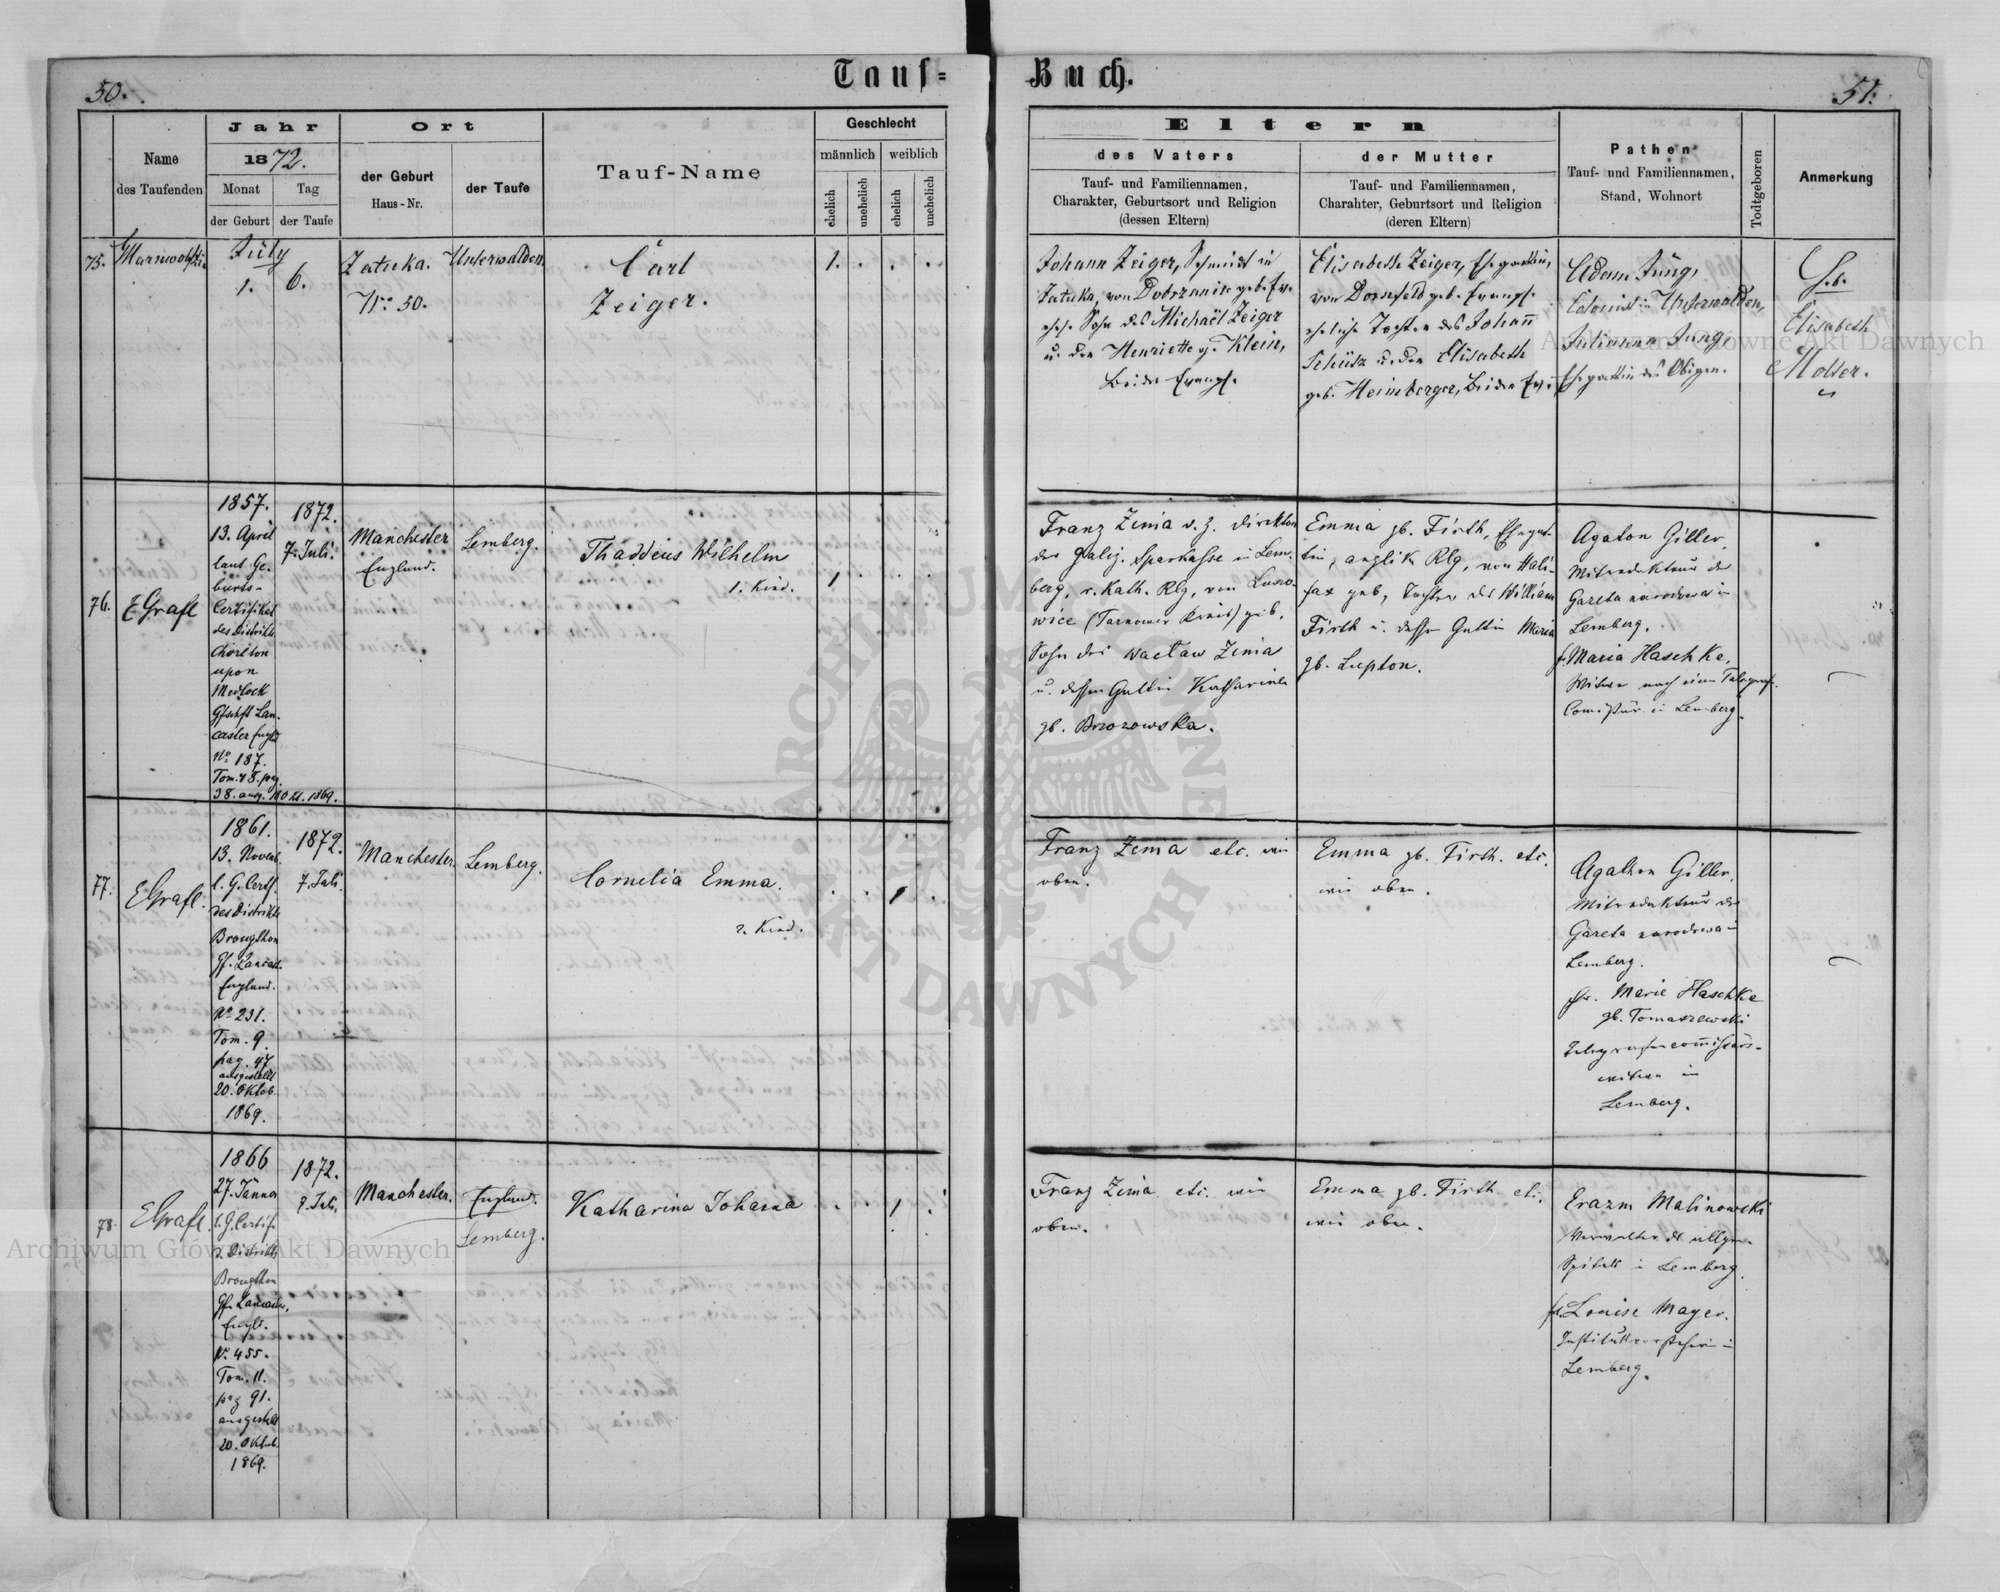 Tauf-
Buch.
50.
51.
Name
des Taufenden
Jahr
1872.
Monat
der Geburt
Tag
der Taufe
Ort
der Geburt
Haus-Nr.
der Taufe
Tauf-Name
Geschlecht
männlich
weiblich
ehelich
unehelich
ehelich
unehelich
Eltern
des Vaters
Tauf- und Familiennamen,
Charakter, Geburtsort und Religion
(dessen Eltern)
der Mutter
Tauf- und Familiennamen,
Charahter, Geburtsort und Religion
(deren Eltern)
Pathen
Tauf- und Familiennamen,
Stand, Wohnort
Todtgeboren
Anmerkung
75.
July
1.
6.
Zatuka.
No. 50.
Unterwalden.
Carl
Zeiger.
1.
Johann Zeiger, Schmidt in
Zatuka, von Dobrzanica geb. Ev.
ehel. Sohn des Michaël Zeiger
u. der Henriette g. Klein,
beide Evangl.
Elisabeth Zeiger, Ehegattin,
von Dornfeld geb. Evangl.
eheliche Tochter des Johann
Schütz u. der Elisabeth
geb. Heimberger, beide Ev.
Adam Jung,
Colonist in Unterwalden,
Julianna Jung,
Ehegattin des Obigen.
Heb.
Elisabeth
Molter.
76.
EGrafl
1857.
13. April
laut Ge-
burts-
Certifikat
des Distrikts
Chorlton
upon
Medlock
Gfschft Lan-
caster Engld
No. 187.
Tom. 48. pag.
38. ausg. 1869.
1872.
7. Juli.
Manchester
England.
Lemberg.
Thaddeus Wilhelm
1. Kind.
1
Franz Zima d. Z. Direktor
der galiz. Sparkasse in Lem-
berg, r. Kath. Rlg, von
wice (Tarnower Kreis) geb.
Sohn des Wacław Zima
u. dessen Gattin Katharina
gb. Brzozowska.
Emma gb. Firth, Ehegat-
tin, anglik. Rlg, von Hali-
fax geb, Tochter des William
Firth u. dessen Gattin Maria
gb. Lupton.
Agaton Giller,
Mitredakteur der
Gazeta narodowa in
Lemberg.
fr. Maria Haschke,
Witwe nach einem Telegraf.
Comissär in Lemberg.
77.
EGrafl.
1861.
13. Novemb.
l. G. Certf.
des Distrikts
Broughton
Gf. Lancast.
England.
No 231.
Tom. 9.
pag. 47
ausgestellt
20. Oktob.
1869.
1872.
7. Juli.
Manchester.
Lemberg.
Cornelia Emma.
2. Kind.
1
Franz Zima etc. wie
oben.
Emma gb. Firth. etc.
wie oben.
Agathon Giller,
Mitredakteur der
Gazeta narodowa in
Lemberg.
fr. Marie Haschke
gb. Tomaszewski
Telegrafencomissärs-
witwe in
Lemberg.
78.
EGrafl.
1866
27. Jänner
l. G. Certif.
d. Distrikts
Broughton
Gf. Lancaster,
Engld.
No. 455.
Tom. 11.
pag 91.
ausgestellt
20. Oktob.
1869.
1872.
7. Juli.
Manchester.
England.
Lemberg.
Katharina Johanna
1
Franz Zima etc. wie
oben.
Emma gb. Firth etc.
wie oben.
Erazm Malinowski
Verwalter des allgem.
Spitals in Lemberg.
fr. Louise Mayer.
Institutsvorsteherin in
Lemberg.
Archiwum Główne Akt Dawnych
Archiwum Główne Akt Dawnych
ARCHIWUM GŁÓWNE
AKT DAWNYCH